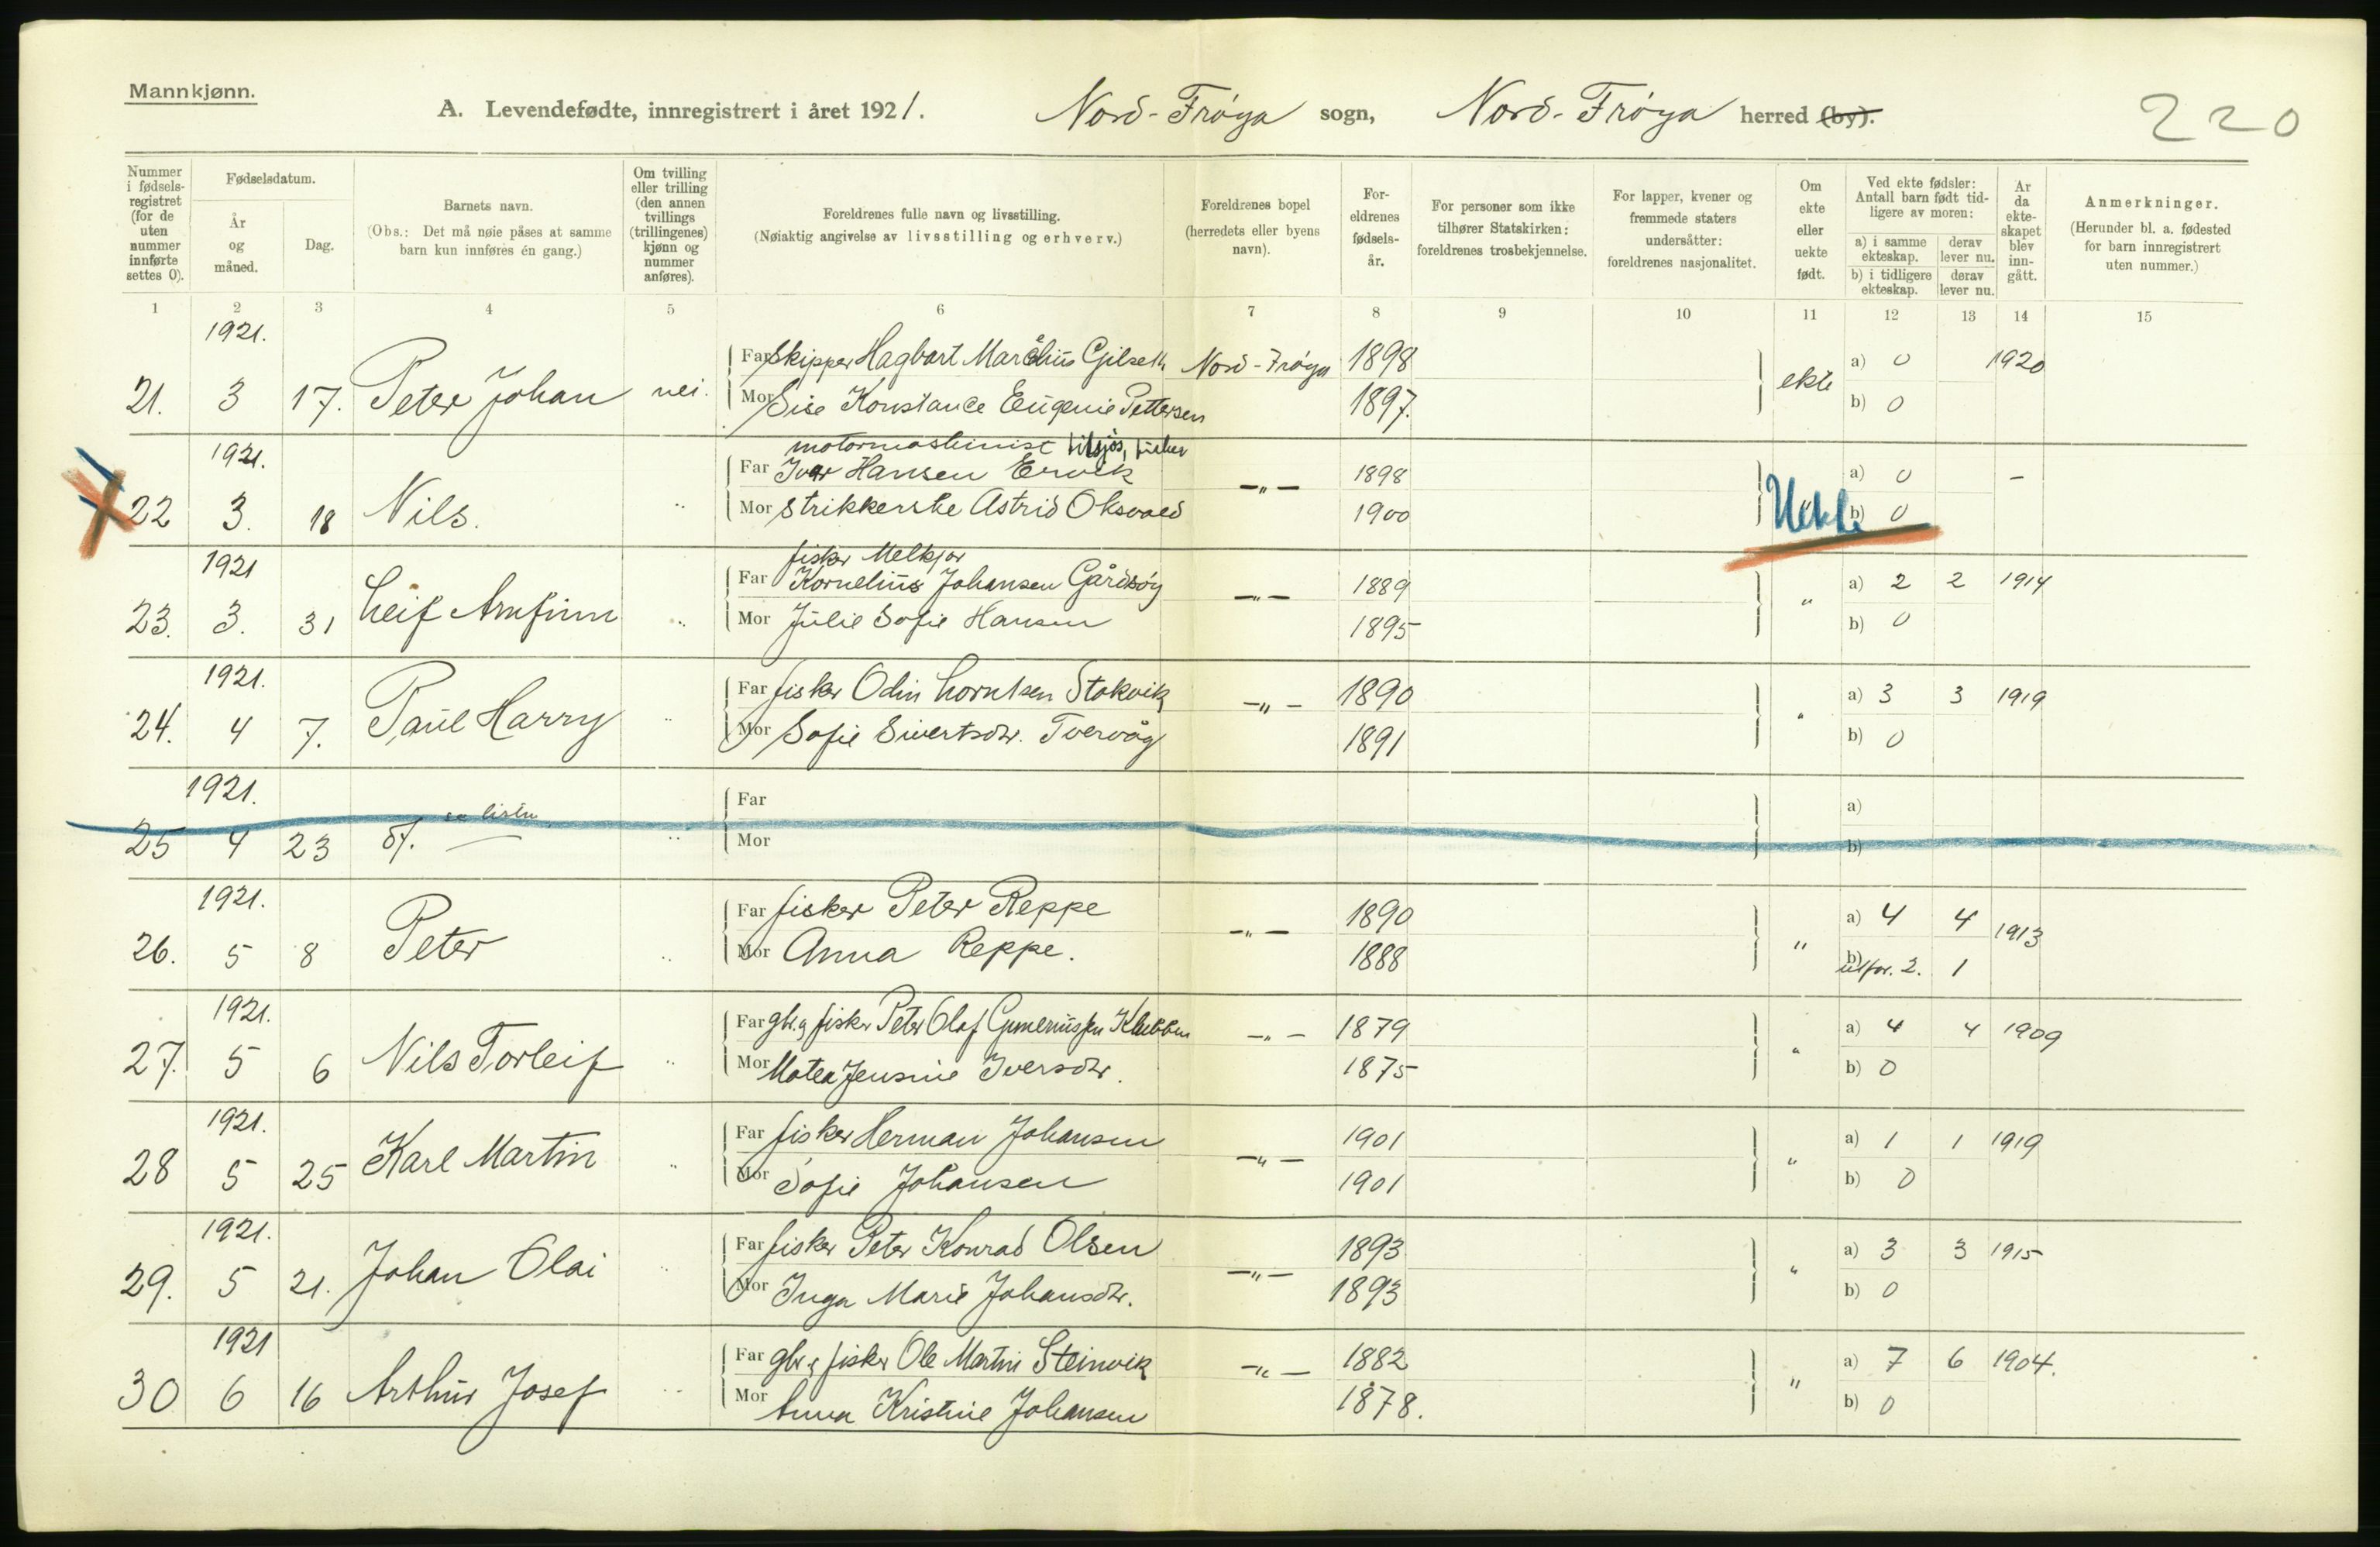 Mannkjønn.
A. Levendefødte, innregistrert i året 1921. Nord-Frøya sogn, Nord-Frøya herred (by). 220
Nummer i fødsels-registret (for de uten nummer innførte settes 0).
Fødselsdatum.
År og måned.
Dag.
Barnets navn.
(Obs.: Det må nøie påses at samme barn kun innføres én gang.)
Om tvilling eller trilling (den annen tvillings (trillingenes) kjønn og nummer anføres).
Foreldrenes fulle navn og livsstilling.
(Nøiaktig angivelse av livsstilling og erhverv.)
Foreldrenes bopel (herredets eller byens navn).
For-eldrenes fødsels-år.
For personer som ikke tilhører Statskirken: foreldrenes trosbekjennelse.
For lapper, kvener og fremmede staters undersåtter: foreldrenes nasjonalitet.
Om ekte eller uekte født.
Ved ekte fødsler: Antall barn født tid-ligere av moren:
a) i samme ekteskap. derav lever nu.
b) i tidligere ekteskap. derav lever nu.
År da ekte-skapet blev inn-gått.
Anmerkninger.
(Herunder bl. a. fødested for barn innregistrert uten nummer.)
1 2 3 4 5 6 7 8 9 10 11 12 13 14 15
1921.
Far Skipper Hagbart Marelius Gilseth Nord-Frøya 1898 a) 0 1920
21. 3 17. Peter Johan nei. ekte
Mor Sise Konstance Eugenie Pettersen 1897. b) 0
1921. motormaskinist tilsjøs, fisker
Far Ivar Hansen Ervik -"- 1898 a) 0 -
22 3. 18 Nils. " Uekte
Mor strikkerske Astrid Oksvold 1900 b) 0
1921 fisker Melkjar
Far Kornelius Johansen Gårdsøy -"- 1889 a) 2 2 1914
23. 3. 31 Leif Arnfinn " "
Mor Julie Sofie Hansen 1895 b) 0
1921.
Far fisker Odin Lorntsen Stokvik -"- 1890 a) 3 3 1919
24. 4 7. Paul Harry " "
Mor Sofie Sivertsdtr. Tvervåg 1891 b) 0
1921.
Far a)
25 4 23 df. se listen "
Mor b)
1921.
Far fisker Peter Reppe -"- 1890 a) 4 4 1913
26. 5 8 Peter " "
Mor Anna Reppe. 1888 b) 2. 1
1921.
Far gbr. & fisker Peter Olaf Klubben -"- 1879 a) 4 4 1909
27. 5 6 Nils Torleif " "
Mor Motea Jensine Iversdtr. 1875 b) 0
1921.
Far fisker Herman Johansen -"- 1901 a) 1 1 1919
28 5 25 Karl Martin " "
Mor Sofie Johansen 1901 b) 0
1921.
Far fisker Peter Konrad Olsen -"- 1893 a) 3 3 1915
29. 5 21. Johan Olai " "
Mor Inga Marie Johansdtr. 1893 b) 0
1921
Far gbr. & fisker Ole Martin Steinvik -"- 1882 a) 7 6 1904.
30 6 16 Arthur Josef " "
Mor Anna Kristine Johansen 1878. b) 0